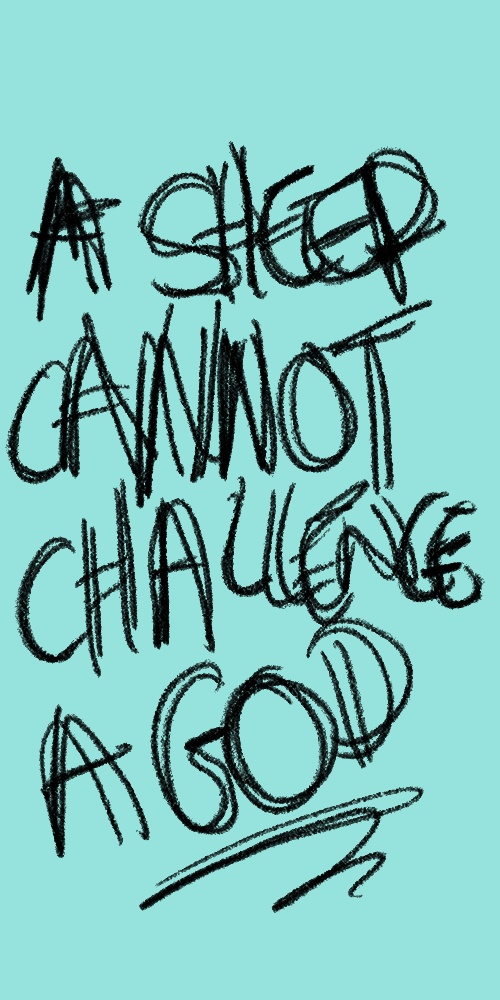 A SHEEP
CANNOT
CHALLENGE
A GOD